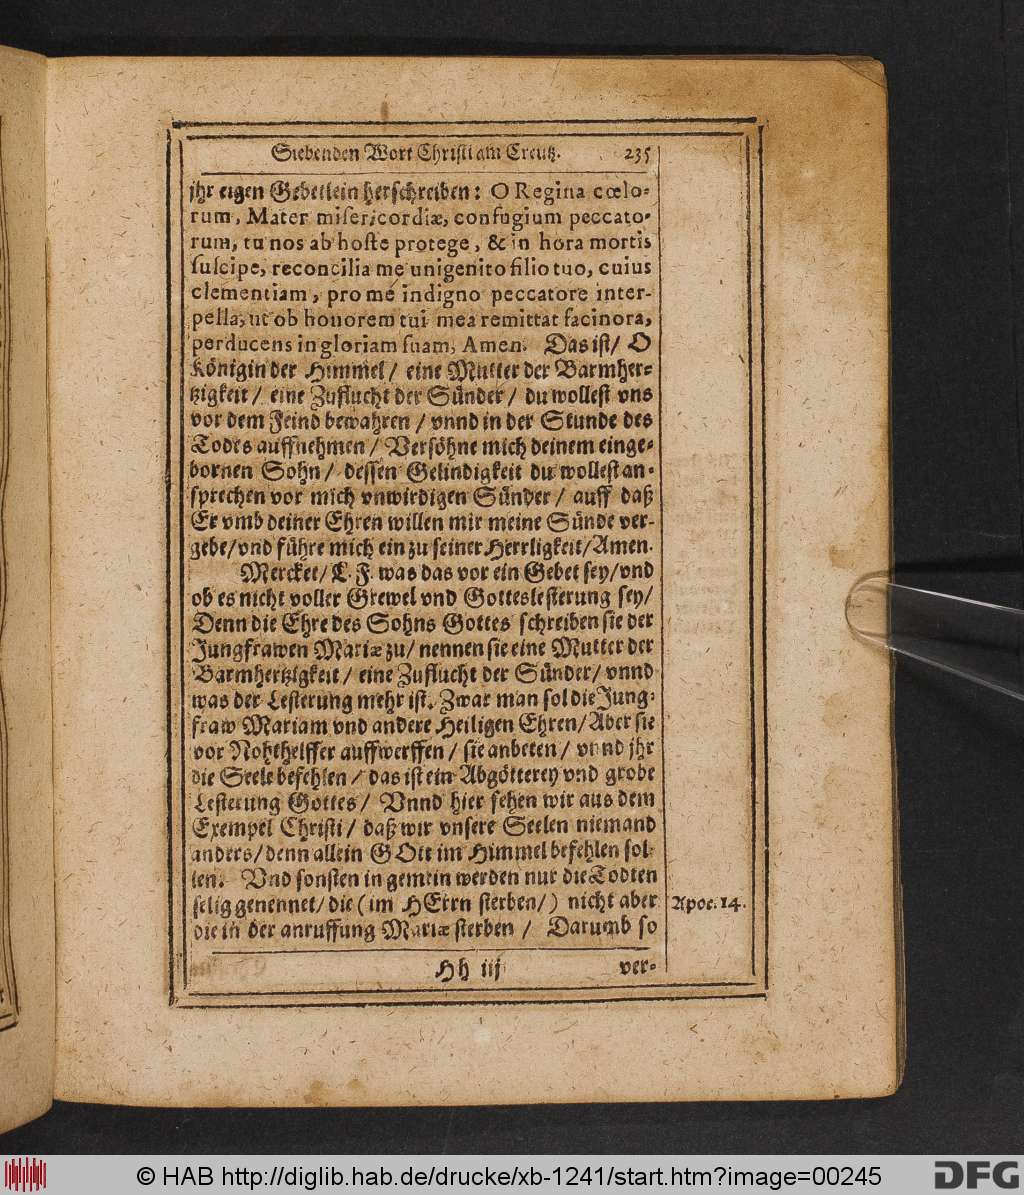 Siebenden Wort Christi am Creutz. 235
jhr eigen Gebetlein herschreiben: O Regina cœlo-
rum, Mater misericordiæ, confugium peccato-
rum, tu nos ab hoſte protege, & in hora mortis
ſuſcipe, reconcilia me unigenito filio tuo, cuius
clementiam, pro me indigno peccatore inter-
pella, ut ob honorem tui mea remittat facinora,
perducens in gloriam ſuam, Amen. Das iſt/ O
Königin der Himmel/ eine Mutter der Barmher-
tzigkeit/ eine Zuflucht der Sünder/ du wolleſt vns
vor dem Feind bewahren/ vnnd in der Stunde des
Todes auffnehmen/ Verſöhne mich deinem einge-
bornen Sohn/ deſſen Gelindigkeit du wolleſt an-
ſprechen vor mich vnwirdigen Sünder/ auff daß
Er vmb deiner Ehren willen mir meine Sünde ver-
gebe/vnd führe mich ein zu ſeiner Herrligkeit/Amen.
Mercket/ L. F. was das vor ein Gebet ſey/vnd
ob es nicht voller Grewel vnd Gottesleſterung ſey/
Denn die Ehre des Sohns Gottes ſchreiben ſie der
Jungfrawen Mariæ zu/ nennen ſie eine Mutter der
Barmhertzigkeit/ eine Zuflucht der Sünder/ vnnd
was der Leſterung mehr iſt. Zwar man ſol die Jung-
fraw Mariam vnd andere Heiligen Ehren/ Aber ſie
vor Nohthelffer auffwerffen/ ſie anbeten/ vnnd jhr
die Seele befehlen/ das iſt ein Abgötterey vnd grobe
Leſterung Gottes/ Vnnd hier ſehen wir aus dem
Exempel Chriſti/ daß wir vnſere Seelen niemand
anders/ denn allein GOtt im Himmel befehlen ſol-
len. Vnd ſonſten in gemein werden nur die Todten
ſelig genennet/ die (im HErrn ſterben/) nicht aber
die in der anruffung Mariæ ſterben/ Darumb ſo
Apoc. 14.
Hh iij ver-
© HAB http://diglib.hab.de/drucke/xb-1241/start.htm?image=00245
DFG